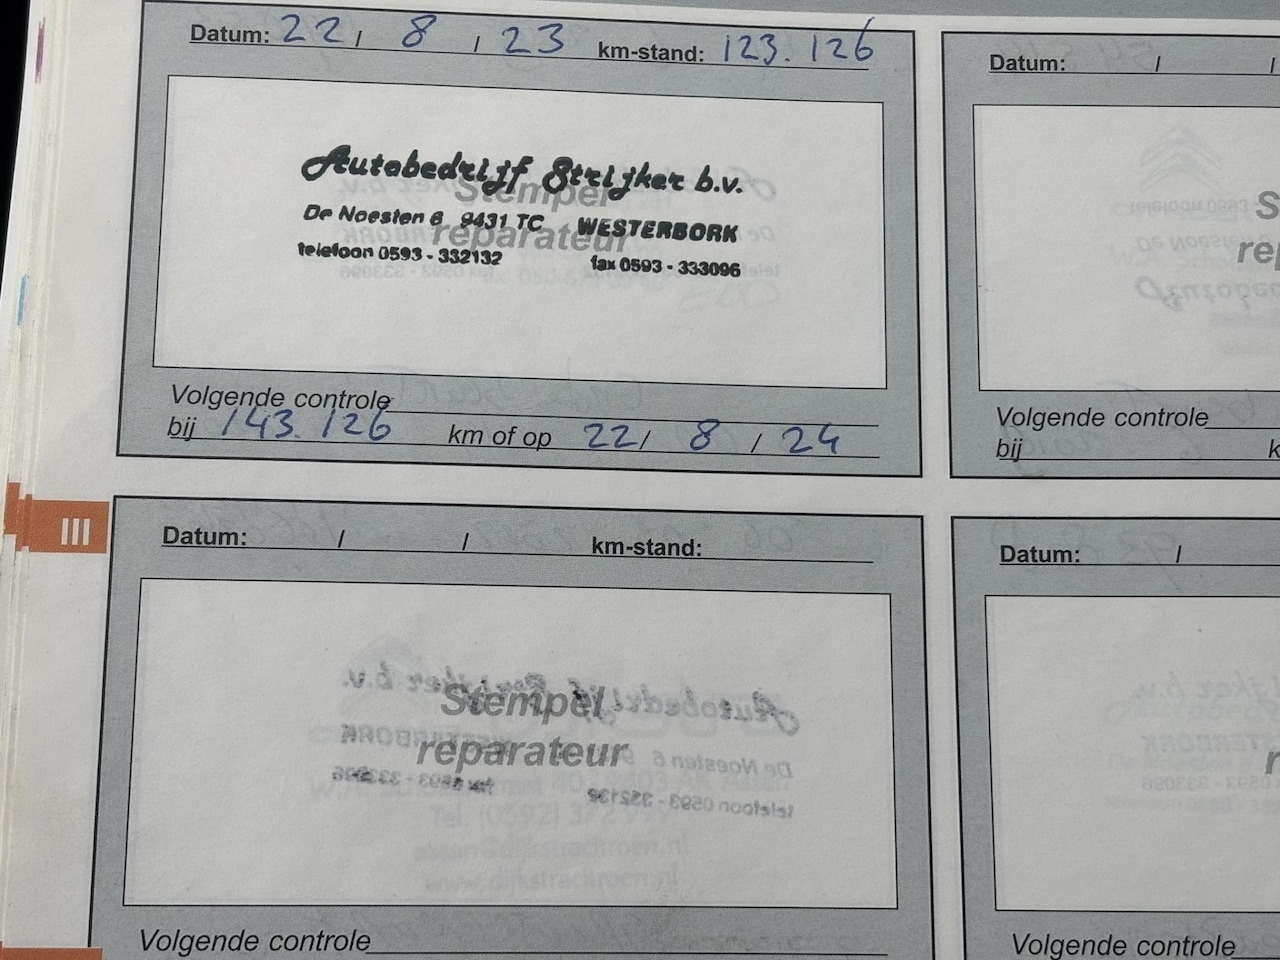 Datum: 22 / 8 / 23 km-stand: 123.126
Autobedrijf Strijker b.v.
Stempel
De Noesten 6 9431 TC WESTERBORK
reparateur
telefoon 0593 - 332132 fax 0593 - 333096
Volgende controle
bij 143.126 km of op 22 / 8 / 24
Datum: / /
Volgende controle
bij
III
Datum: / / km-stand:
Stempel
reparateur
Volgende controle
Datum: /
Volgende controle